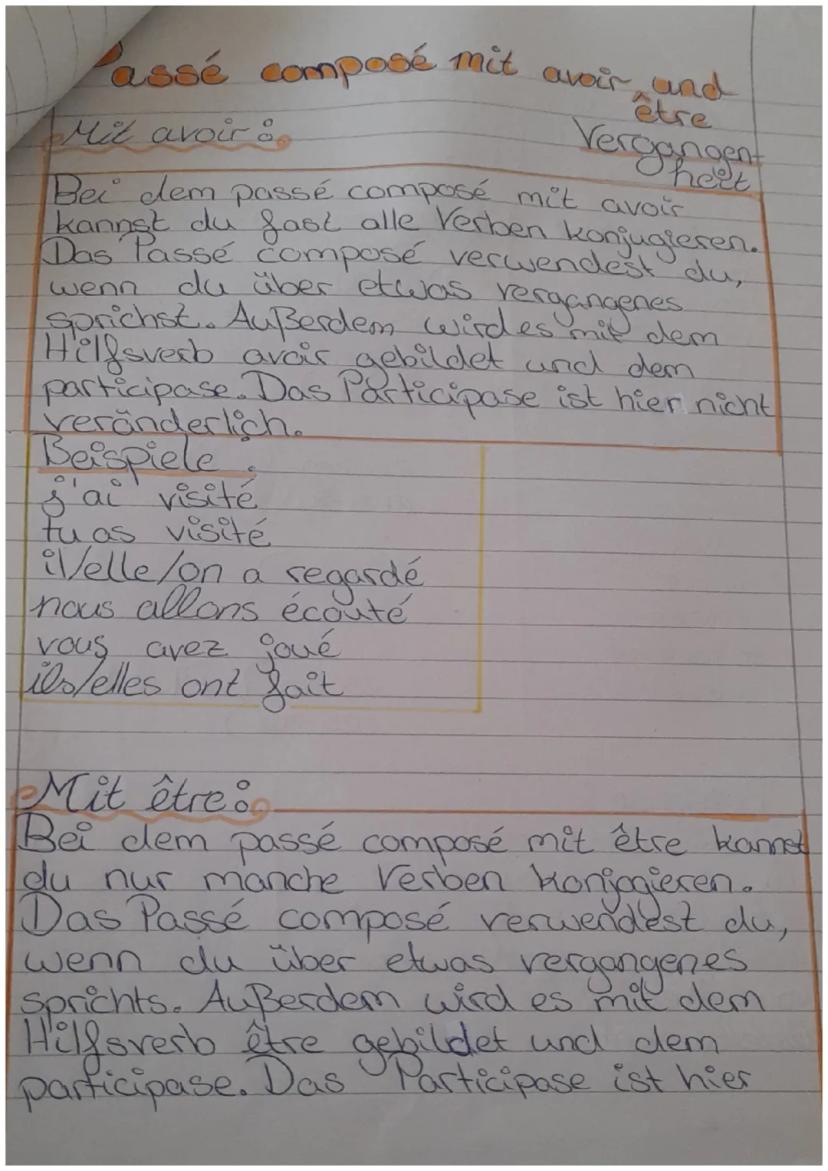 Passé composé mit avoir und
être
Mit avoir:
Vergangen-
heit
Bei dem passé composé mit avoir
kannst du fast alle Verben konjugieren.
Das Passé composé verwendest du,
wenn du über etwas vergangenes
sprichst. Außerdem wird es mit dem
Hilfsverb avoir gebildet und dem
participase. Das Participase ist hier nicht
veränderlich.
Beispiele:
j'ai visité
tu as visité
il/elle/on a regardé
nous allons écouté
vous avez joué
ils/elles ont fait
Mit être:
Bei dem passé composé mit être kannst
du nur manche Verben konjogieren.
Das Passé composé verwendest du,
wenn du über etwas vergangenes
sprichts. Außerdem wird es mit dem
Hilfsverb être gebildet und dem
participase. Das Participase ist hier